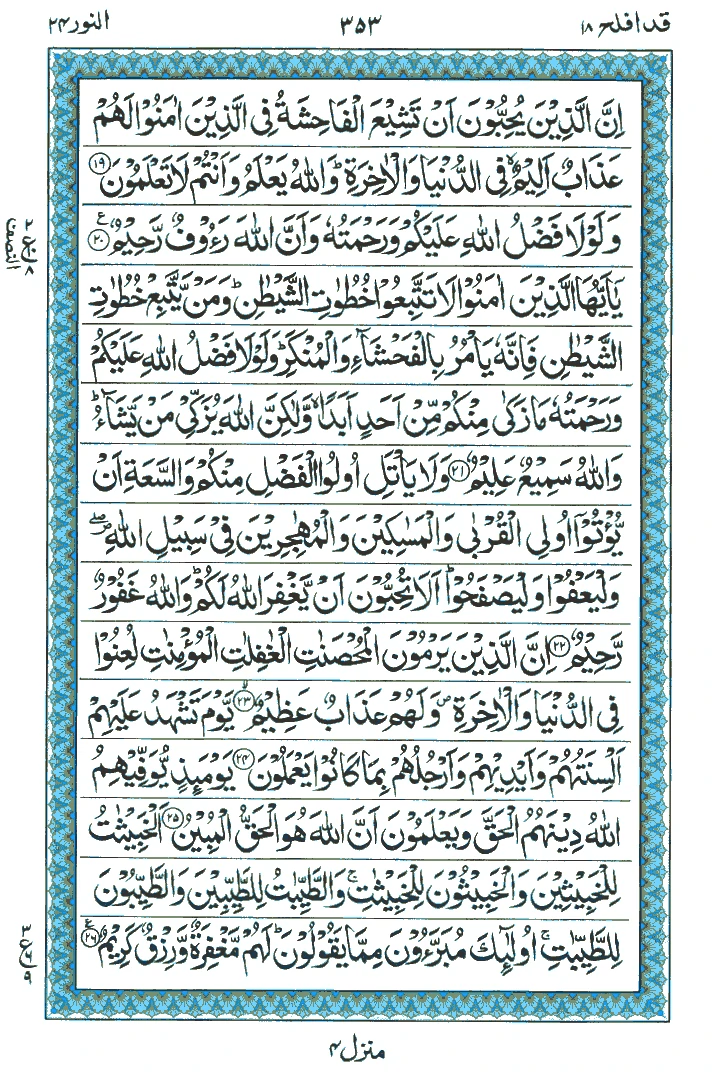 قد افلح ۱۸ ۳۵۳ النور ۲۴
اِنَّ الَّذِيْنَ يُحِبُّوْنَ اَنْ تَشِيْعَ الْفَاحِشَةُ فِى الَّذِيْنَ اٰمَنُوْا لَهُمْ
عَذَابٌ اَلِيْمٌۙ فِى الدُّنْيَا وَالْاٰخِرَةِؕ وَاللّٰهُ يَعْلَمُ وَاَنْتُمْ لَا تَعْلَمُوْنَ ۱۹
وَلَوْلَا فَضْلُ اللّٰهِ عَلَيْكُمْ وَرَحْمَتُهٗ وَاَنَّ اللّٰهَ رَءُوْفٌ رَّحِيْمٌ ۲۰ ع
يٰۤاَيُّهَا الَّذِيْنَ اٰمَنُوْا لَا تَتَّبِعُوْا خُطُوٰتِ الشَّيْطٰنِؕ وَمَنْ يَّتَّبِعْ خُطُوٰتِ
الشَّيْطٰنِ فَاِنَّهٗ يَاْمُرُ بِالْفَحْشَآءِ وَالْمُنْكَرِؕ وَلَوْلَا فَضْلُ اللّٰهِ عَلَيْكُمْ
وَرَحْمَتُهٗ مَا زَكٰى مِنْكُمْ مِّنْ اَحَدٍ اَبَدًاۙ وَّلٰكِنَّ اللّٰهَ يُزَكِّىْ مَنْ يَّشَآءُؕ
وَاللّٰهُ سَمِيْعٌ عَلِيْمٌ ۲۱ وَلَا يَاْتَلِ اُولُوا الْفَضْلِ مِنْكُمْ وَالسَّعَةِ اَنْ
يُّؤْتُوْۤا اُولِى الْقُرْبٰى وَالْمَسٰكِيْنَ وَالْمُهٰجِرِيْنَ فِىْ سَبِيْلِ اللّٰهِۖ
وَلْيَعْفُوْا وَلْيَصْفَحُوْاؕ اَلَا تُحِبُّوْنَ اَنْ يَّغْفِرَ اللّٰهُ لَكُمْؕ وَاللّٰهُ غَفُوْرٌ
رَّحِيْمٌ ۲۲ اِنَّ الَّذِيْنَ يَرْمُوْنَ الْمُحْصَنٰتِ الْغٰفِلٰتِ الْمُؤْمِنٰتِ لُعِنُوْا
فِى الدُّنْيَا وَالْاٰخِرَةِ وَلَهُمْ عَذَابٌ عَظِيْمٌ ۲۳ يَّوْمَ تَشْهَدُ عَلَيْهِمْ
اَلْسِنَتُهُمْ وَاَيْدِيْهِمْ وَاَرْجُلُهُمْ بِمَا كَانُوْا يَعْمَلُوْنَ ۲۴ يَوْمَئِذٍ يُّوَفِّيْهِمُ
اللّٰهُ دِيْنَهُمُ الْحَقَّ وَيَعْلَمُوْنَ اَنَّ اللّٰهَ هُوَ الْحَقُّ الْمُبِيْنُ ۲۵ اَلْخَبِيْثٰتُ
لِلْخَبِيْثِيْنَ وَالْخَبِيْثُوْنَ لِلْخَبِيْثٰتِۚ وَالطَّيِّبٰتُ لِلطَّيِّبِيْنَ وَالطَّيِّبُوْنَ
لِلطَّيِّبٰتِۚ اُولٰٓئِكَ مُبَرَّءُوْنَ مِمَّا يَقُوْلُوْنَؕ لَهُمْ مَّغْفِرَةٌ وَّرِزْقٌ كَرِيْمٌ ۲۶ ع
منزل ۴
النصف